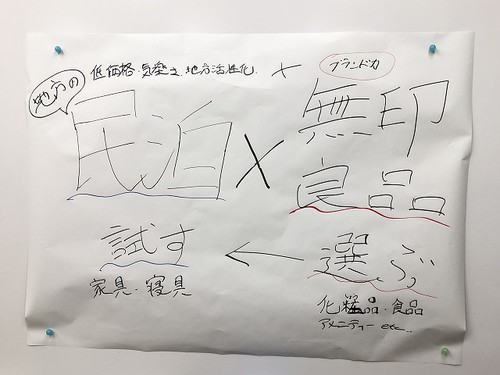 低価格・気楽さ・地方活性化 × ブランド力
地方の
民泊 × 無印
良品
試す ← 選ぶ
家具・寝具
化粧品・食品
アメニティー etc...